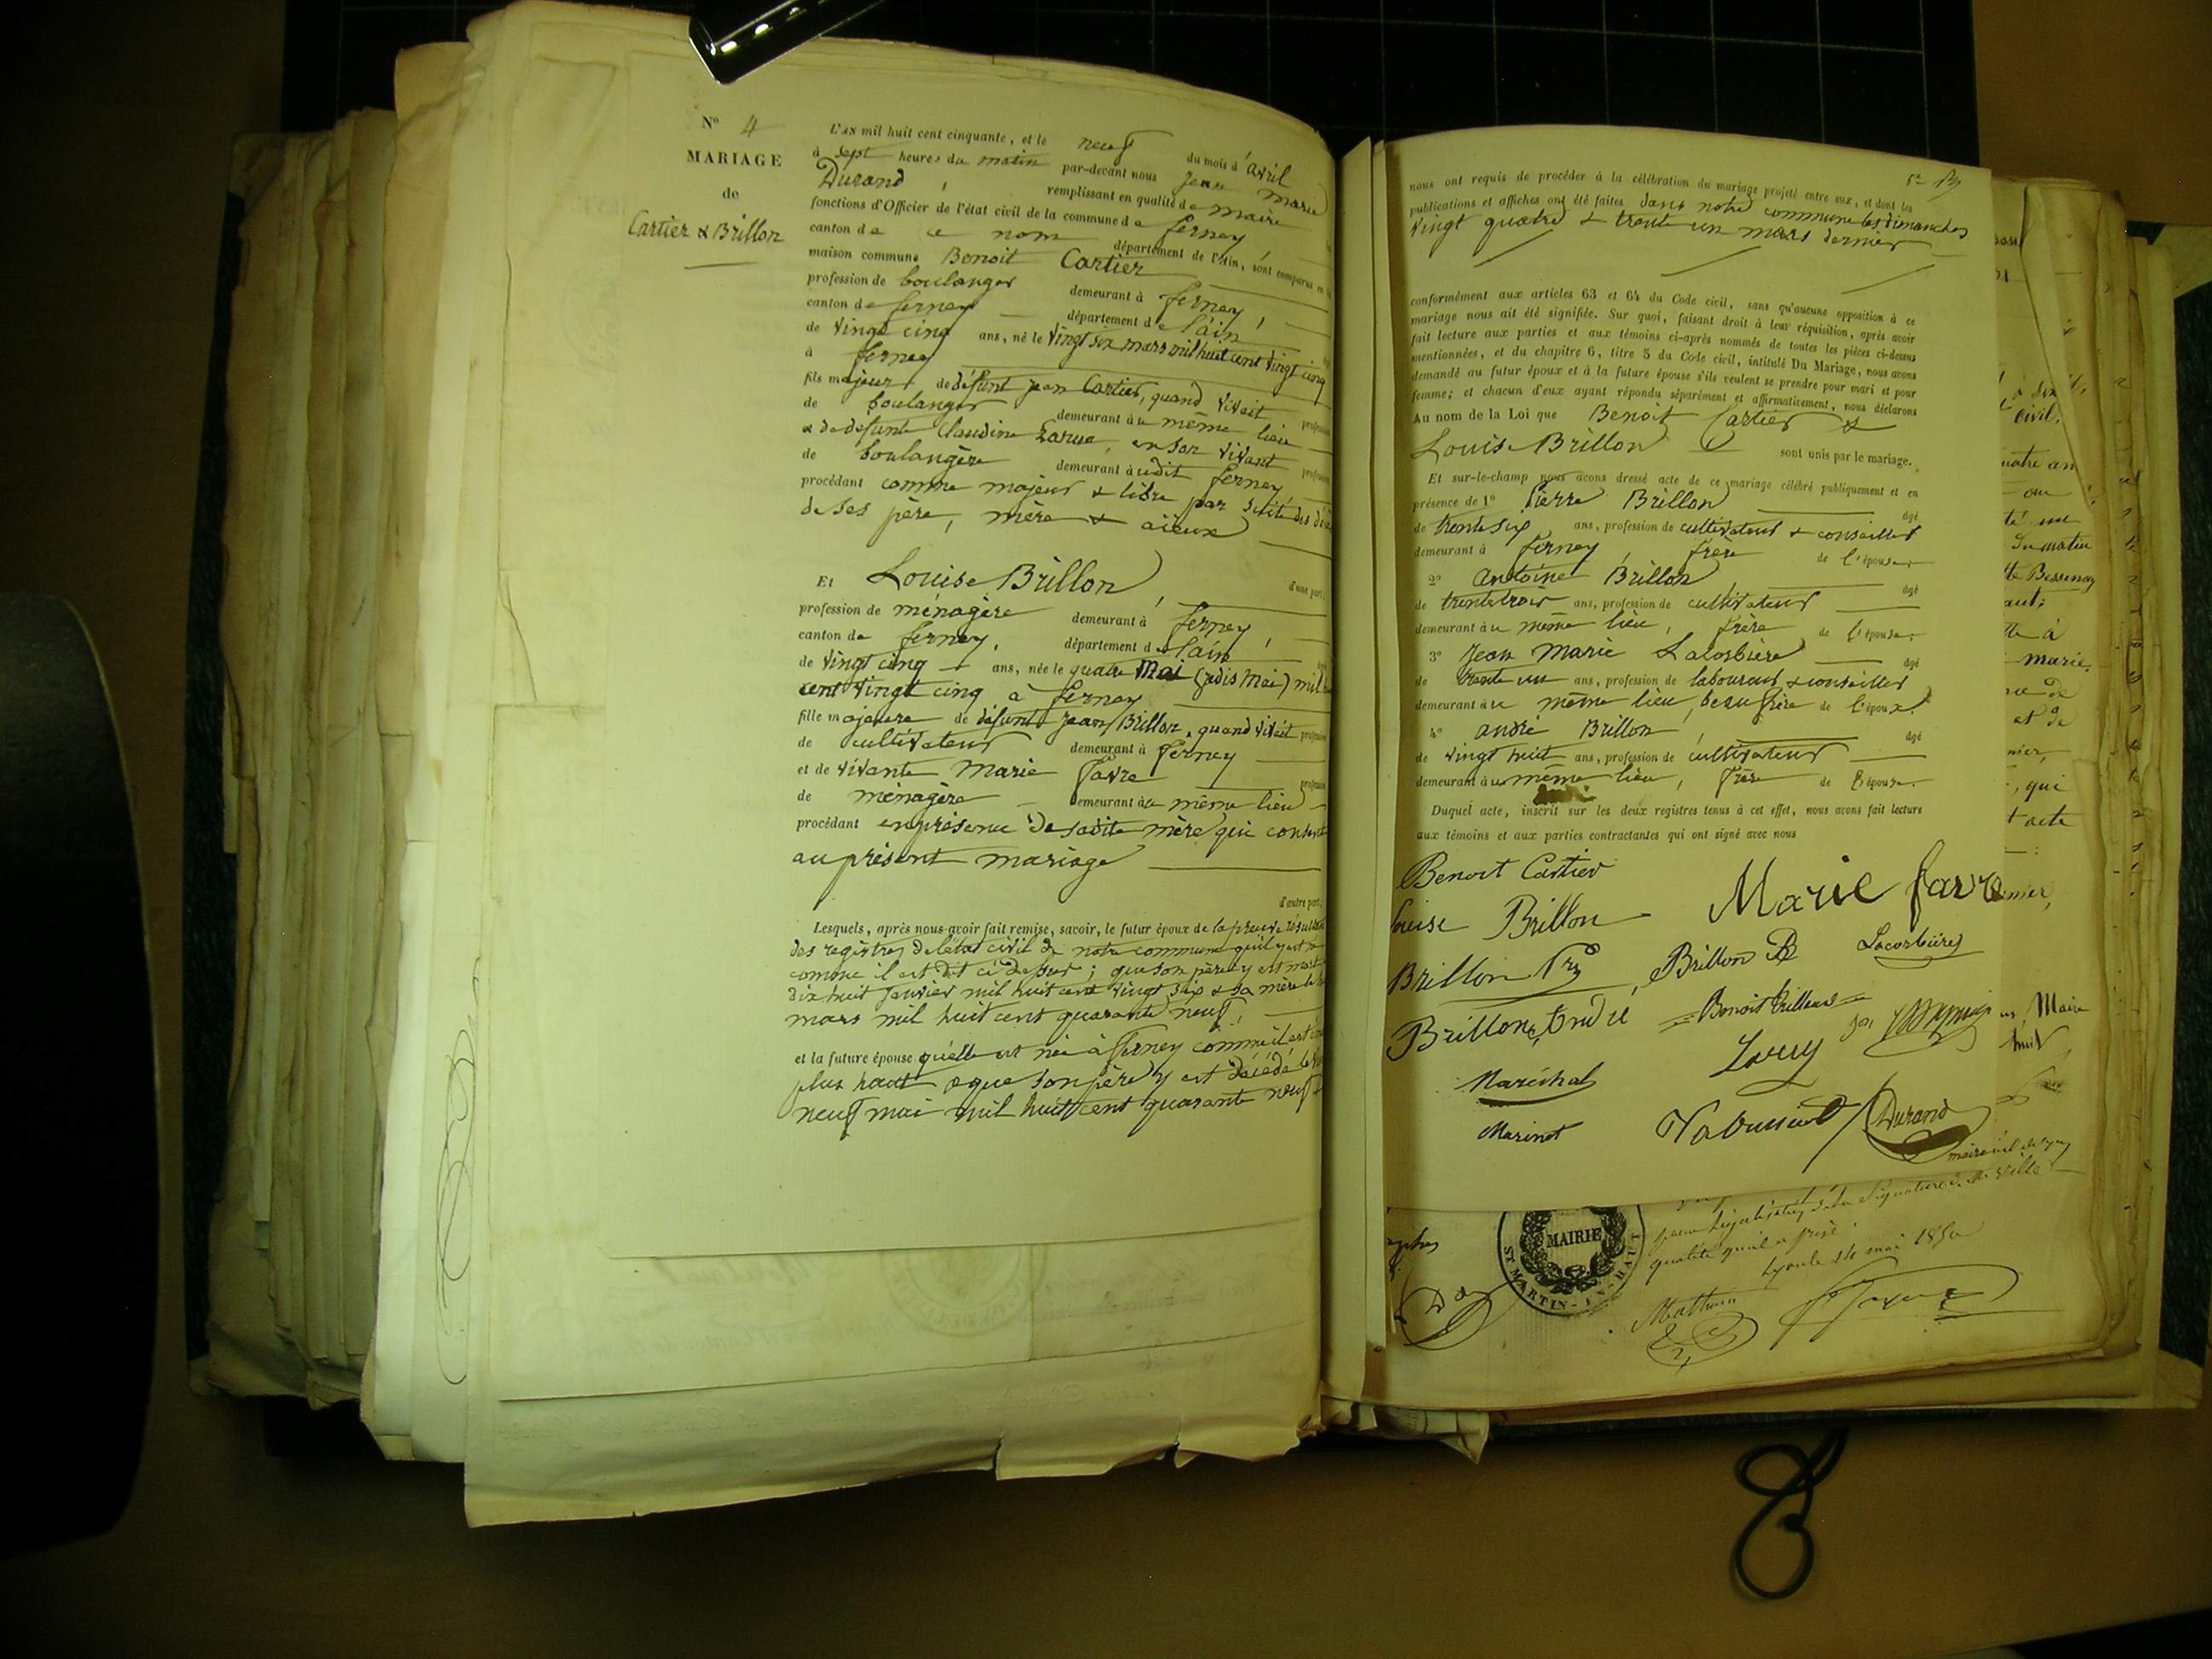 Nº 4
MARIAGE
de
Cartier & Brillon
L'AN mil huit cent cinquante, et le neuf du mois d'avril
à sept heures du matin par-devant nous Jean Marie
Durand, remplissant en qualité de maire
fonctions d'Officier de l'état civil de la commune de ferney
canton de ce nom département de l'Ain, sont comparus en
maison commune Benoit Cartier
profession de boulanger demeurant à ferney,
canton de ferney département de l'ain
de vingt cinq ans, né le vingt six mars mil huit cent vingt cinq
à ferney
fils majeur de défunt jean Cartier, quand vivait profession
de boulanger demeurant au même lieu
& de defunte Claudine Larue, en son vivant profession
de boulangère demeurant audit ferney
procédant comme majeur & libre par suite des
de ses père, mère & aïeux
d'une part;
Et Louise Brillon,
profession de ménagère demeurant à ferney,
canton de ferney, département de l'ain
de vingt cinq ans, née le quatre Mai (jedis Mai) mil
cent vingt cinq à ferney
fille majeure de défunt jean Brillon, quand vivait profession
de cultivateur demeurant à ferney
et de vivante Marie favre profession
de ménagère demeurant au même lieu
procédant en présence de sadite mère qui consent
au présent mariage
d'autre part;
Lesquels, après nous avoir fait remise, savoir, le futur époux de la preuve
des registres de l'état civil de notre commune qu'il y est
comme il est dit ci dessus; que son père y est mort
dix huit janvier mil huit cent vingt six & sa mère le
mars mil huit cent quarante neuf,
et la future épouse qu'elle est née à ferney comme il est
plus haut & que son père y est décédé le
neuf mai mil huit cent quarante neuf
nous ont requis de procéder à la célébration du mariage projeté entre eux, et dont les
publications et affiches ont été faites dans notre commune les dimanches
vingt quatre & trente un mars dernier
conformément aux articles 63 et 64 du Code civil, sans qu'aucune opposition à ce
mariage nous ait été signifiée. Sur quoi, faisant droit à leur réquisition, après avoir
fait lecture aux parties et aux témoins ci-après nommés de toutes les pièces ci-dessus
mentionnées, et du chapitre 6, titre 5 du Code civil, intitulé Du Mariage, nous avons
demandé au futur époux et à la future épouse s'ils veulent se prendre pour mari et pour
femme; et chacun d'eux ayant répondu séparément et affirmativement, nous déclarons
Au nom de la Loi que Benoit Cartier &
Louise Brillon sont unis par le mariage.
Et sur-le-champ nous avons dressé acte de ce mariage célébré publiquement et en
présence de 1º Pierre Brillon âgé
de trente six ans, profession de cultivateur & conseiller
demeurant à ferney, frère de l'épouse
2º antoine Brillon âgé
de trente trois ans, profession de cultivateur
demeurant au même lieu, frère de l'épouse
3º Jean Marie Lacorbière âgé
de trente un ans, profession de laboureur & conseiller
demeurant au même lieu, beau frère de l'époux
4º andré Brillon, âgé
de vingt huit ans, profession de cultivateur
demeurant au même lieu, frère de l'épouse
Duquel acte, inscrit sur les deux registres tenus à cet effet, nous avons fait lecture
aux témoins et aux parties contractantes qui ont signé avec nous
Benoit Cartier
Louise Brillon Marie favre
Brillon Brillon Lacorbière
Brillon André Benoit
Maréchal
Marinet
Durand
maire
MAIRIE
ST MARTIN-EN-HAUT
mai 1850